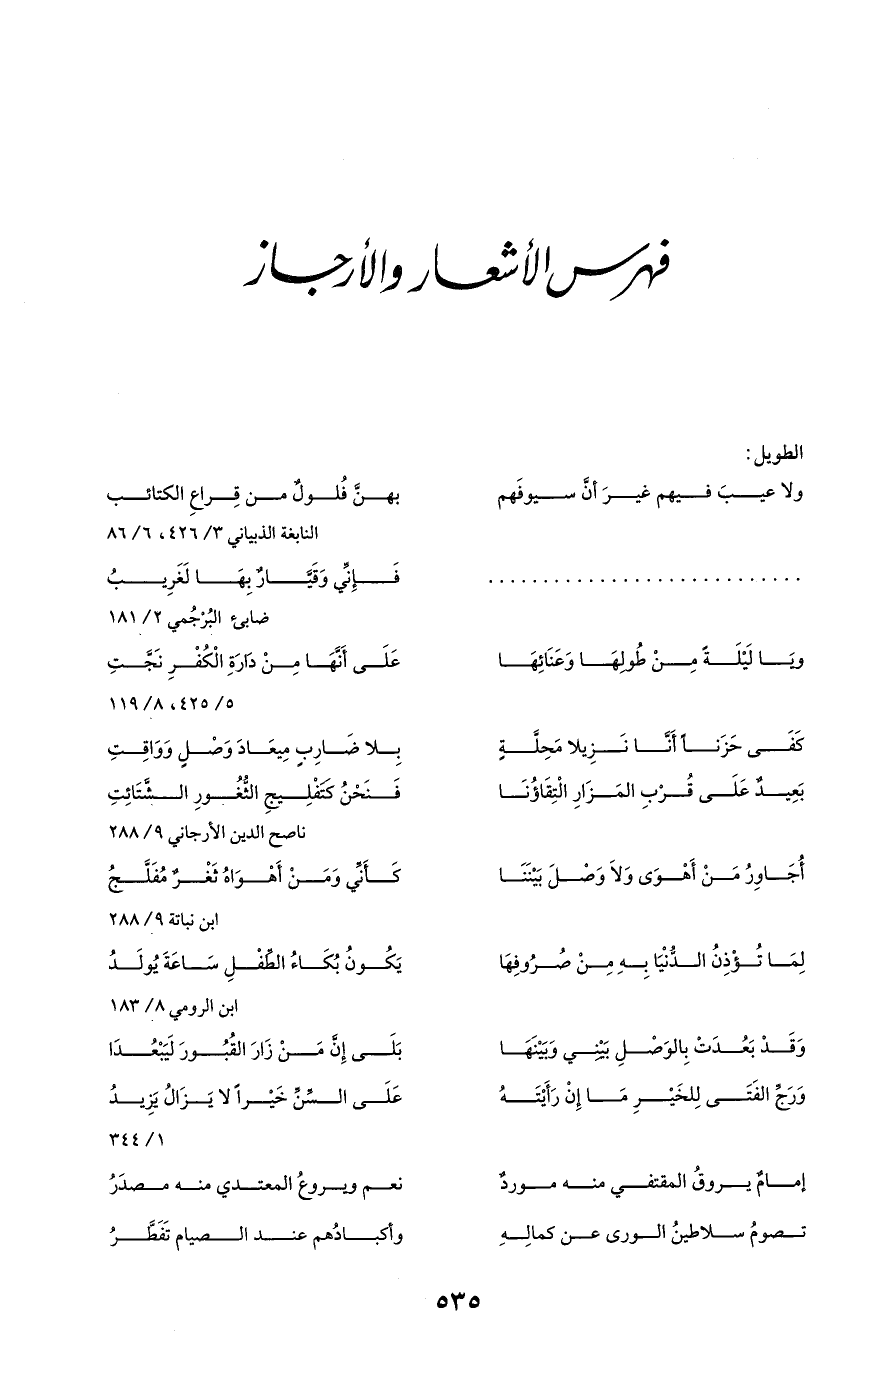 فهرس الأشعار والأرجاز
الطويل:
ولا عيبَ فيهم غيرَ أنَّ سيوفَهم بهنَّ فُلولٌ من قِراعِ الكتائب
النابغة الذبياني ٣/ ٤٢٦، ٦/ ٨٦
........................... فَإِنِّي وَقَيَّارٌ بِهَا لَغَرِيبُ
ضابئ البُرْجُمي ٢/ ١٨١
ويَا لَيْلَةً مِنْ طُولِهَا وَعَنَائِهَا عَلَى أَنَّهَا مِنْ دَارَةِ الْكُفْرِ نَجَّتِ
٥/ ٤٢٥، ٨/ ١١٩
كَفَى حَزَناً أَنَّا نَزِيلا مَحِلَّةٍ بِلا ضَارِبٍ مِيعَادَ وَصْلٍ وَوَاقِتِ
بَعِيدٌ عَلَى قُرْبِ المَزَارِ الْتِقَاؤُنَا فَنَحْنُ كَتَفْلِيجِ الثُّغُورِ الشَّتَائِتِ
ناصح الدين الأرجاني ٩/ ٢٨٨
أُجَاوِرُ مَنْ أَهْوَى وَلاَ وَصْلَ بَيْنَنَا كَأَنِّي وَمَنْ أَهْوَاهُ ثَغْرٌ مُفَلَّجُ
ابن نباتة ٩/ ٢٨٨
لِمَا تُؤْذِنُ الدُّنْيَا بِهِ مِنْ صُرُوفِهَا يَكُونُ بُكَاءُ الطِّفْلِ سَاعَةَ يُولَدُ
ابن الرومي ٨/ ١٨٣
وَقَدْ بَعُدَتْ بِالوَصْلِ بَيْنِي وَبَيْنَهَا بَلَى إِنَّ مَنْ زَارَ القُبُورَ لَيَبْعُدَا
وَرَجِّ الفَتَى لِلخَيْرِ مَا إِنْ رَأَيْتَهُ عَلَى السِّنِّ خَيْراً لا يَزَالُ يَزِيدُ
١/ ٣٤٤
إمامٌ يروقُ المقتفي منه موردٌ نعم ويروعُ المعتدي منه مصدَرُ
تصومُ سلاطينُ الورى عن كمالِهِ وأكبادُهم عند الصيام تَفَطَّرُ
٥٣٥